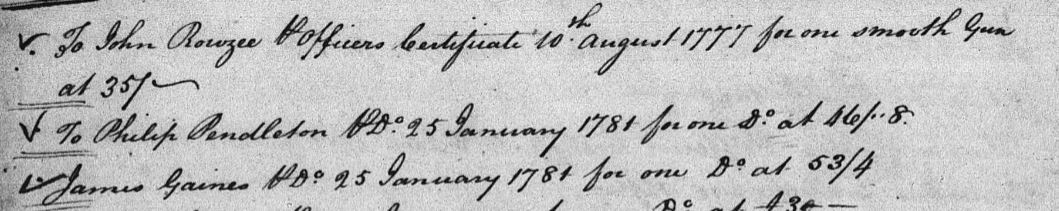 To John Rowzee ⅌ Officers Certificate 10th August 1777 for one smooth Gun
at 35/
To Philip Pendleton ⅌ Do. 25 January 1781 for one Do. at 46/..8
James Gaines ⅌ Do 25 January 1781 for one Do at 53/4
Do at £30